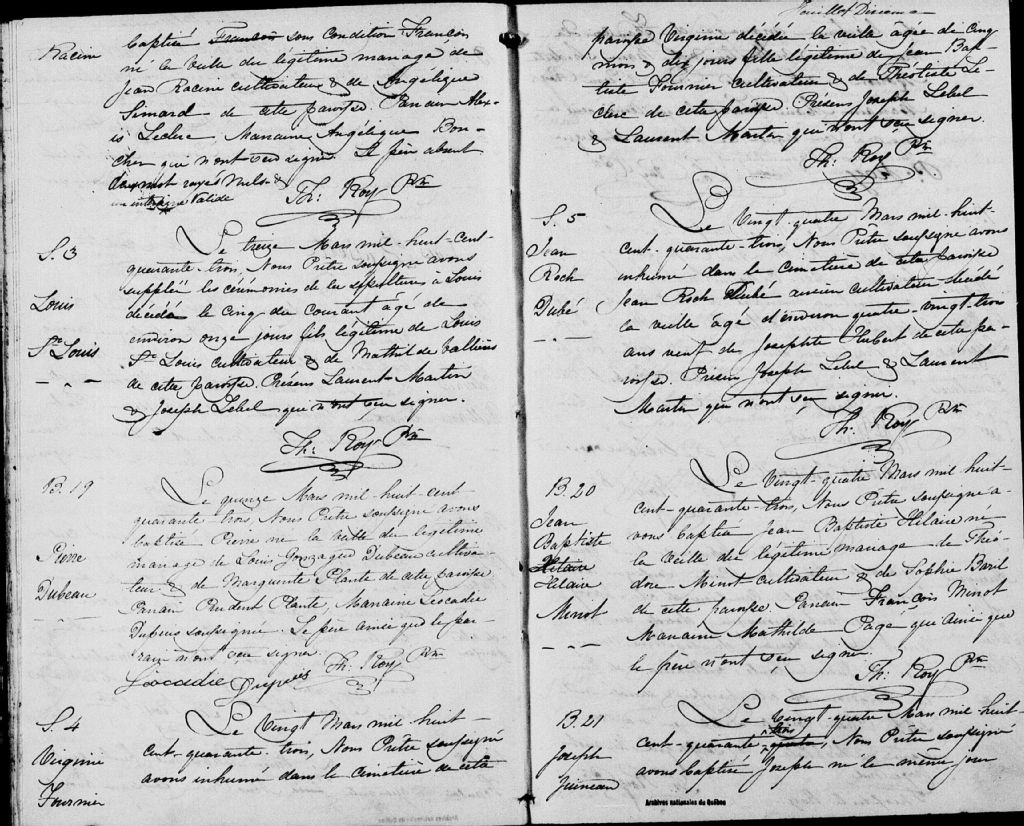 Racine
baptisé François sous Condition François
né la veille du légitime mariage de
Jean Racine cultivateur & de Angélique
Simard de cette paroisse. Parain Alex-
is Leclerc Maraine Angélique Bou-
cher qui n'ont su signé. Le père absent
mot rayés nuls &
valide
Th: Roy Ptre
S. 3
Louis
St Louis
Le treize Mars mil-huit-cent-
quarante-trois, Nous Prêtre soussigné avons
suppléé les cérémonies de la sépulture à Louis
décédé le cinq du courant âgé de
environ onze jours fils légitime de Louis
St Louis cultivateur & de Mathilde
de cette paroisse. Présens Laurent Martin
& Joseph Lebel qui n'ont su signer.
Th: Roy Ptre
B. 19
Pierre
Dubeau
Le quinze Mars mil-huit-cent-
quarante-trois, Nous Prêtre soussigné avons
baptisé Pierre né la veille du légitime
mariage de Louis Gonzague Dubeau cultiva-
teur & de Marguerite Plante de cette paroisse
Parain Prudent Plante, Maraine Léocadie
soussignée. Le père ainsi que le par-
rain n'ont su signer.
Léocadie Dupuis Th: Roy Ptre
S. 4
Virginie
Fournier
Le Vingt Mars mil-huit-
cent-quarante-trois, Nous Prêtre soussigné
avons inhumé dans le cimetière de cette
paroisse Virginie décédée la veille âgée de cinq
mois & dix jours fille légitime de Jean Bap-
tiste Fournier cultivateur & de Théotiste Le-
clerc de cette paroisse. Présens Joseph Lebel
& Laurent Martin qui n'ont su signer.
Th: Roy Ptre
S. 5
Jean
Roch
Dubé
Le Vingt-quatre Mars mil-huit-
cent-quarante-trois, Nous Prêtre soussigné avons
inhumé dans le cimetière de cette paroisse
Jean Roch Dubé ancien cultivateur décédé
la veille âgé d'environ quatre-vingt-trois
ans veuf de Josephte Hubert de cette pa-
roisse. Présens Joseph Lebel & Laurent
Martin qui n'ont su signer.
Th: Roy Ptre
B. 20
Jean
Baptiste
Hilaire
Hilaire
Minot
Le Vingt-quatre Mars mil-huit-
cent-quarante-trois, Nous Prêtre soussigné a-
vons baptisé Jean Baptiste Hilaire né
la veille du légitime mariage de Théo-
dore Minot cultivateur & de Sophie Baril
de cette paroisse. Parain François Minot
Maraine Mathilde Pagé qui ainsi que
le père n'ont su signer.
Th: Roy Ptre
B. 21
Joseph
Juineau
Le Vingt-quatre Mars mil-huit-
cent-quarante trois quatre, Nous Prêtre soussigné
avons baptisé Joseph né le même jour
Archives nationales du Québec